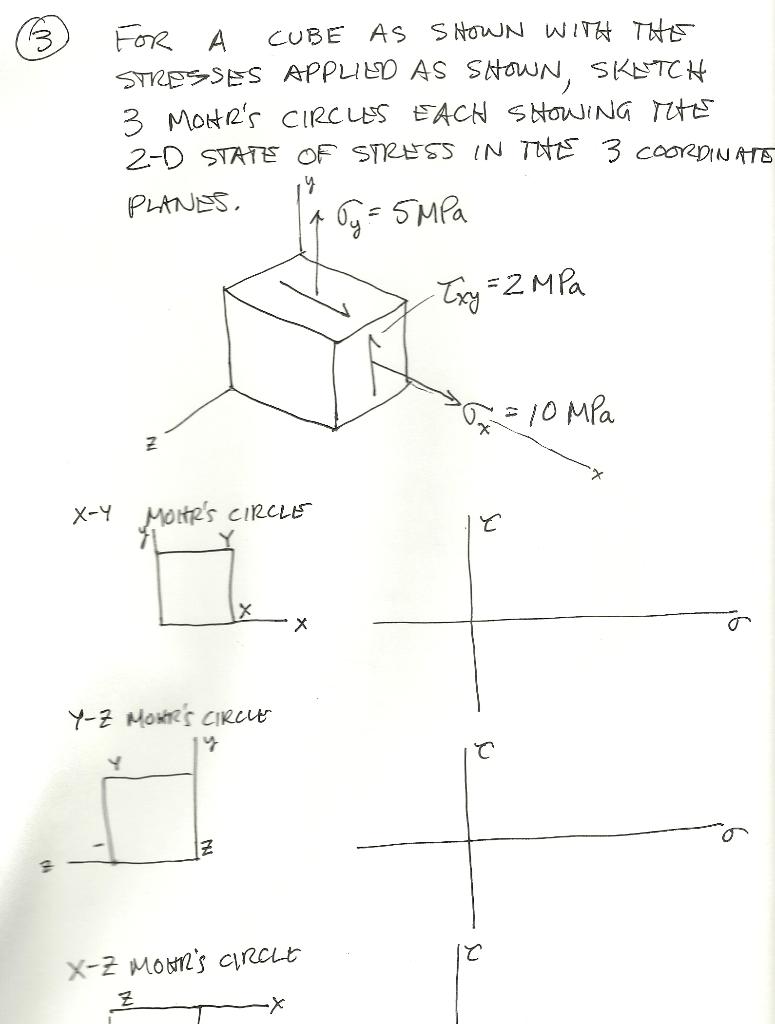 3 FOR A CUBE AS SHOWN WITH THE
STRESSES APPLIED AS SHOWN, SKETCH
3 MOHR'S CIRCLES EACH SHOWING THE
2-D STATE OF STRESS IN THE 3 COORDINATE
PLANES.
y
σy = 5 MPa
τxy = 2 MPa
σx = 10 MPa
z
x
X-Y MOHR'S CIRCLE
y Y
X x
τ
σ
Y-Z MOHR'S CIRCLE
Y y
z Z
τ
σ
X-Z MOHR'S CIRCLE
Z x
τ